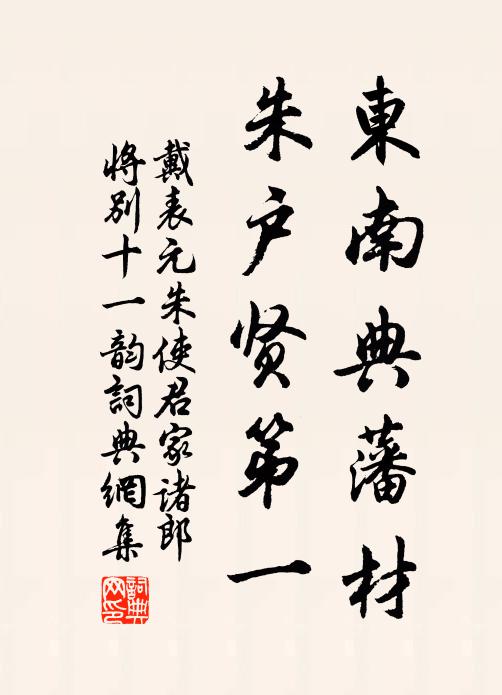 東南典藩材
朱户贤第一
戴表元朱使君家诸郎
将别十一韵詞典網集
詞典网印